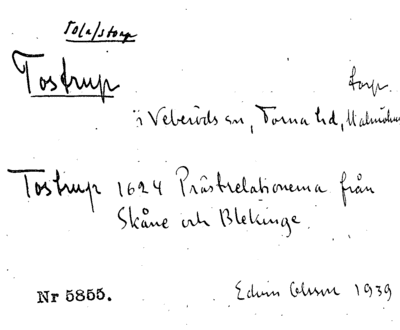 Tolastorp
Tostrup torp
i Veberöds sn, Torna hd, Malmöhus
Tostrup 1624 Prästrelationerna från
Skåne och Blekinge.
Nr 5855. Edvin Ohlsson 1939